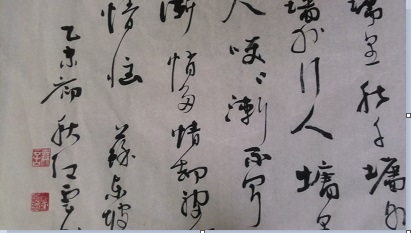 墙里秋千墙外
墙外行人墙里
人笑々渐不闻
渐悄多情却被
情恼 蘇东坡
乙未初秋